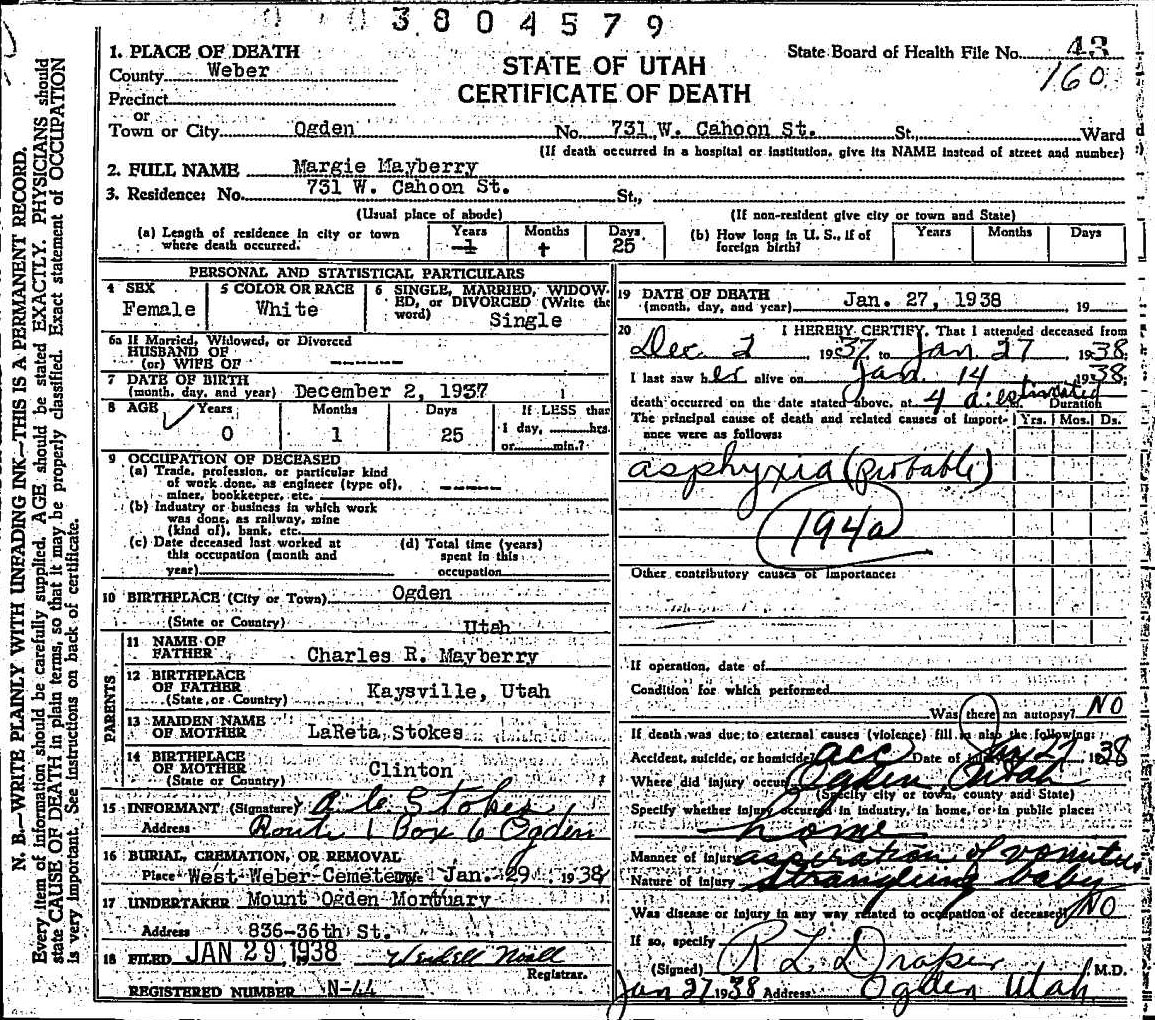 3804579
1. PLACE OF DEATH
County Weber
STATE OF UTAH
CERTIFICATE OF DEATH
State Board of Health File No. 43
160
Precinct
or
Town or City Ogden No. 731 W. Cahoon St. St., Ward
(If death occurred in a hospital or institution, give its NAME instead of street and number)
2. FULL NAME Margie Mayberry
3. Residence: No. 731 W. Cahoon St. St.,
(Usual place of abode) (If non-resident give city or town and State)
(a) Length of residence in city or town where death occurred. Years Months 1 Days 25
(b) How long in U. S., if of foreign birth? Years Months Days
PERSONAL AND STATISTICAL PARTICULARS
4 SEX Female
5 COLOR OR RACE White
6 SINGLE, MARRIED, WIDOWED, or DIVORCED (Write the word) Single
6a If Married, Widowed, or Divorced
HUSBAND OF
(or) WIFE OF -----
7 DATE OF BIRTH
(month, day, and year) December 2, 1937
8 AGE Years 0 Months 1 Days 25 If LESS than 1 day, hrs. or min.?
9 OCCUPATION OF DECEASED
(a) Trade, profession, or particular kind of work done, as engineer (type of), miner, bookkeeper, etc. ----
(b) Industry or business in which work was done, as railway, mine (kind of), bank, etc.
(c) Date deceased last worked at this occupation (month and year)
(d) Total time (years) spent in this occupation
10 BIRTHPLACE (City or Town) Ogden
(State or Country) Utah
PARENTS
11 NAME OF FATHER Charles R. Mayberry
12 BIRTHPLACE OF FATHER (State or Country) Kaysville, Utah
13 MAIDEN NAME OF MOTHER LaReta Stokes
14 BIRTHPLACE OF MOTHER (State or Country) Clinton
15 INFORMANT (Signature) Stokes
Address Route 1 Box 6 Ogden
16 BURIAL, CREMATION, OR REMOVAL
Place West Weber Cemetery Jan. 29, 1938
17 UNDERTAKER Mount Ogden Mortuary
Address 836-36th St.
18 FILED JAN 29, 1938 Wendell Noall
Registrar.
REGISTERED NUMBER N-44
19 DATE OF DEATH
(month, day, and year) Jan. 27, 1938 19
20 I HEREBY CERTIFY, That I attended deceased from
Dec. 2, 1937 to Jan 27, 1938;
I last saw her alive on Jan. 14 1938;
death occurred on the date stated above, at 4 a. estimated m. Duration
The principal cause of death and related causes of importance were as follows: Yrs. Mos. Ds.
asphyxia (probable)
194a
Other contributory causes of importance:
If operation, date of
Condition for which performed
Was there an autopsy? NO
If death was due to external causes (violence) fill in also the following:
Accident, suicide, or homicide acc Date of injury Jan 27 1938
Where did injury occur Ogden Utah
(Specify city or town, county and State)
Specify whether injury occurred in industry, in home, or in public place:
home
Manner of injury aspiration of vomitus
Nature of injury strangling baby
Was disease or injury in any way related to occupation of deceased? NO
If so, specify
(Signed) R L Draper M.D.
Jan 27 1938 Address Ogden Utah
N. B.—WRITE PLAINLY WITH UNFADING INK—THIS IS A PERMANENT RECORD.
Every item of information should be carefully supplied. AGE should be stated EXACTLY. PHYSICIANS should
state CAUSE OF DEATH in plain terms, so that it may be properly classified. Exact statement of OCCUPATION
is very important. See instructions on back of certificate.